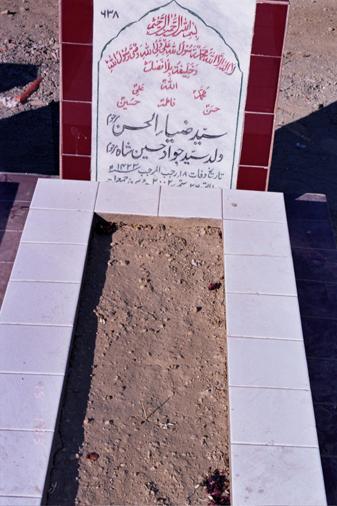 ۶۳۸
بسم اللہ الرحمن الرحیم
لا الہ الا اللہ محمد رسول اللہ علی ولی اللہ وصی رسول اللہ
وخلیفتہ بلا فصل
اللہ
محمد علی
حسن فاطمہ حسین
سید ضیاء الحسن
ولد سید جواد حسین شاہ
تاریخ وفات ۱۸ رجب المرجب ۱۴۲۳